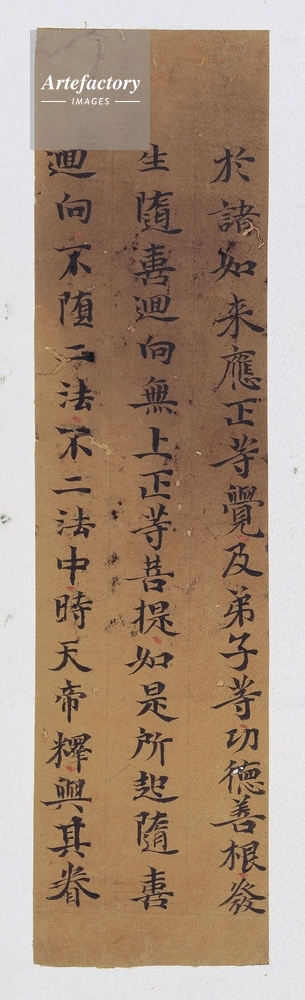 Artefactory
IMAGES
於諸如来應正等覺及弟子等功徳善根發
生隨喜迴向無上正等菩提如是所起隨喜
迴向不墮二法不二法中時天帝釋與其眷